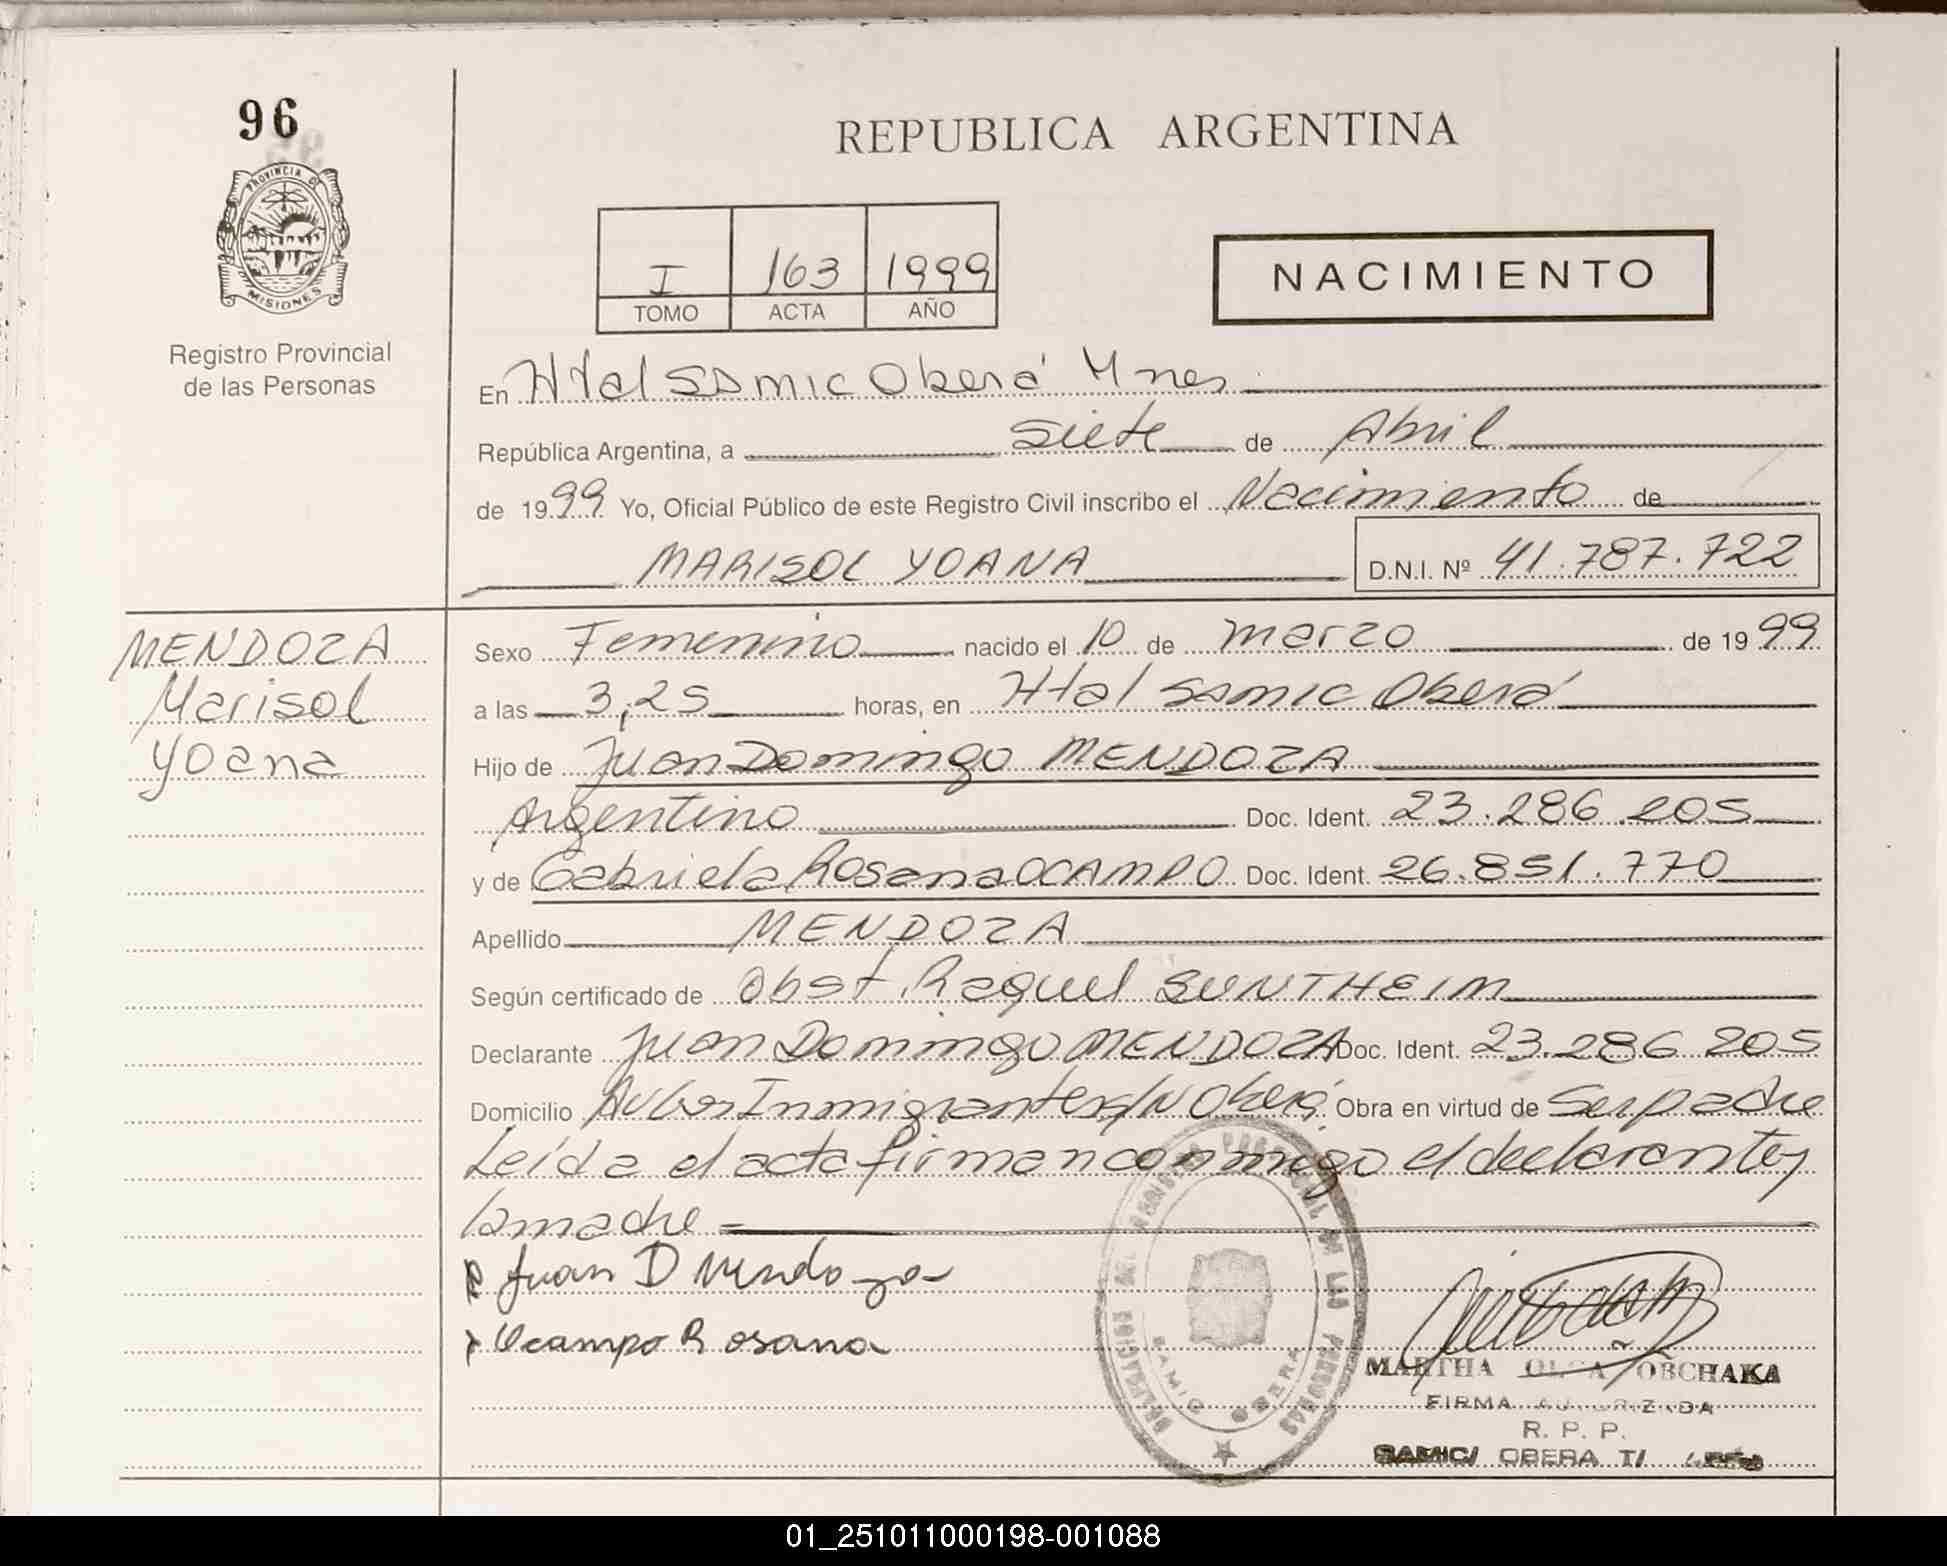 96
PROVINCIA D
MISIONES
Registro Provincial
de las Personas
REPUBLICA ARGENTINA
I 163 1999
TOMO ACTA AÑO
NACIMIENTO
En Htal SAMIC Oberá Mnes
República Argentina, a siete de Abril
de 1999 Yo, Oficial Público de este Registro Civil inscribo el Nacimiento de
MARISOL YOANA D.N.I. Nº 41.787.722
MENDOZA
Marisol
Yoana
Sexo Femenino nacido el 10 de marzo de 1999
a las 3,25 horas, en Htal SAMIC Oberá
Hijo de Juan Domingo MENDOZA
Argentino Doc. Ident. 23.286.205
y de Gabriela Rosana OCAMPO Doc. Ident. 26.851.770
Apellido MENDOZA
Según certificado de Obst. Raquel SUNTHEIM
Declarante Juan Domingo MENDOZA Doc. Ident. 23.286.205
Domicilio Inmigrantes s/N Oberá. Obra en virtud de Ser padre
Leída el acta firman conmigo el declarante y
la madre =
Juan D Mendoza
Ocampo Rosana
DE LAS PERSONAS
SAMIC OBERA
MARTHA OLGA OBCHAKA
FIRMA AUTORIZADA
R. P. P.
SAMIC/ OBERA T/
01_251011000198-001088